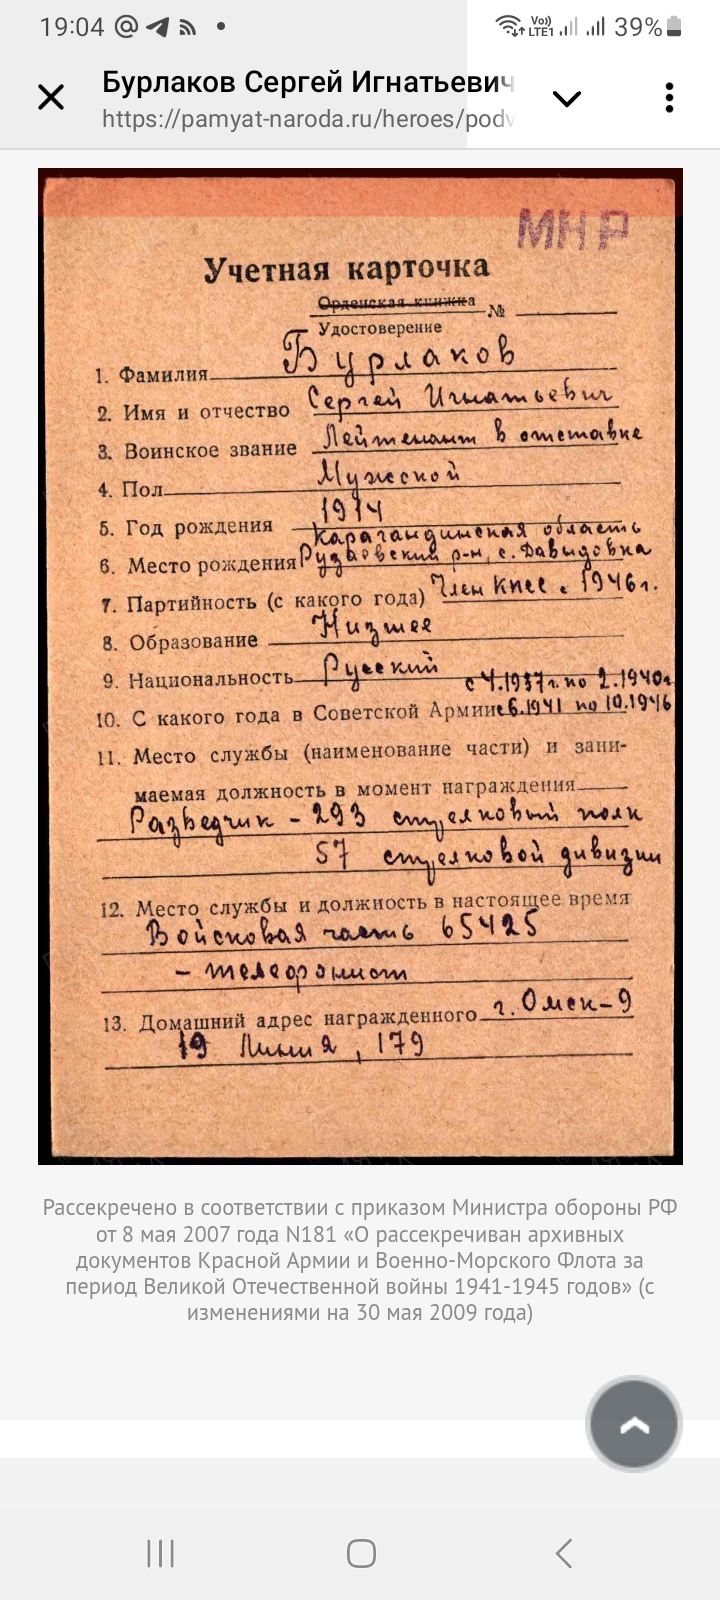 19:04
Vo)) LTE1 39%
Бурлаков Сергей Игнатьевич
https://pamyat-naroda.ru/heroes/podv
МНР
Учетная карточка
Орденская книжка
Удостоверение №
1. Фамилия Бурлаков
2. Имя и отчество Сергей Игнатьевич
3. Воинское звание Лейтенант в отставке
4. Пол Мужской
5. Год рождения 1914
Карагандинская область
6. Место рождения Рузаевский р-н, с. Давыдовка
7. Партийность (с какого года) Член КПСС с 1946 г.
8. Образование Низшее
9. Национальность Русский
с 4.1937 г. по 2.1940г
10. С какого года в Советской Армии с 6.1941 по 10.1946
11. Место службы (наименование части) и зани-
маемая должность в момент награждения
Разведчик - 293 стрелковый полк
57 стрелковой дивизии
12. Место службы и должность в настоящее время
Войсковая часть 65425
- телефонист
13. Домашний адрес награжденного г. Омск-9
19 Линия, 179
Рассекречено в соответствии с приказом Министра обороны РФ
от 8 мая 2007 года N181 «О рассекречиван архивных
документов Красной Армии и Военно-Морского Флота за
период Великой Отечественной войны 1941-1945 годов» (с
изменениями на 30 мая 2009 года)